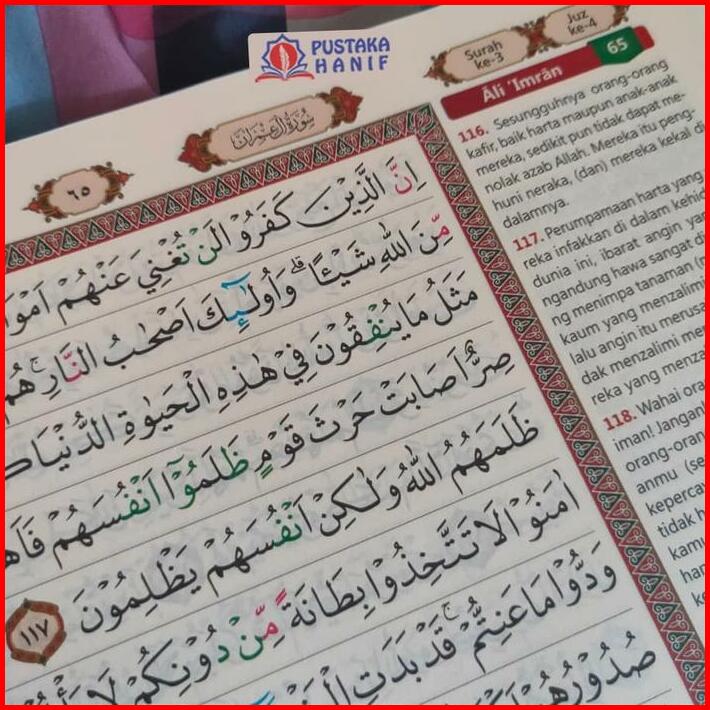 PUSTAKA
HANIF
Surah
ke-3
Juz
ke-4
65
Āli ‘Imrān
سُوْرَةُ اٰلِ عِمْرَانَ
٦٥
اِنَّ الَّذِيْنَ كَفَرُوْا لَنْ تُغْنِيَ عَنْهُمْ اَمْوَا
مِّنَ اللّٰهِ شَيْـًٔا ۗ وَاُولٰۤىِٕكَ اَصْحٰبُ النَّارِ ۚ هُمْ
مَثَلُ مَا يُنْفِقُوْنَ فِيْ هٰذِهِ الْحَيٰوةِ الدُّنْيَا
صِرٌّ اَصَابَتْ حَرْثَ قَوْمٍ ظَلَمُوْٓا اَنْفُسَهُمْ
ظَلَمَهُمُ اللّٰهُ وَلٰكِنْ اَنْفُسَهُمْ يَظْلِمُوْنَ ١١٧
اٰمَنُوْا لَا تَتَّخِذُوْا بِطَانَةً مِّنْ دُوْنِكُمْ لَا
وَدُّوْا مَا عَنِتُّمْ ۚ قَدْ بَدَتِ
صُدُوْرُهُمْ
116. Sesungguhnya orang-orang
kafir, baik harta maupun anak-anak
mereka, sedikit pun tidak dapat me-
nolak azab Allah. Mereka itu peng-
huni neraka, (dan) mereka kekal di
dalamnya.
117. Perumpamaan harta yang
reka infakkan di dalam kehid
dunia ini, ibarat angin yan
ngandung hawa sangat di
ng menimpa tanaman (m
kaum yang menzalimi
lalu angin itu merusa
dak menzalimi mer
reka yang menza
118. Wahai ora
iman! Jangan
orang-oran
anmu (se
kepercay
tidak h
kamu
har
ke